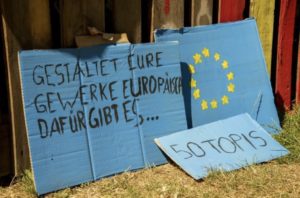 GESTALTET EURE
GEWERKE EUROPÄISCH
DAFÜR GIBT ES...
50 TOPIS